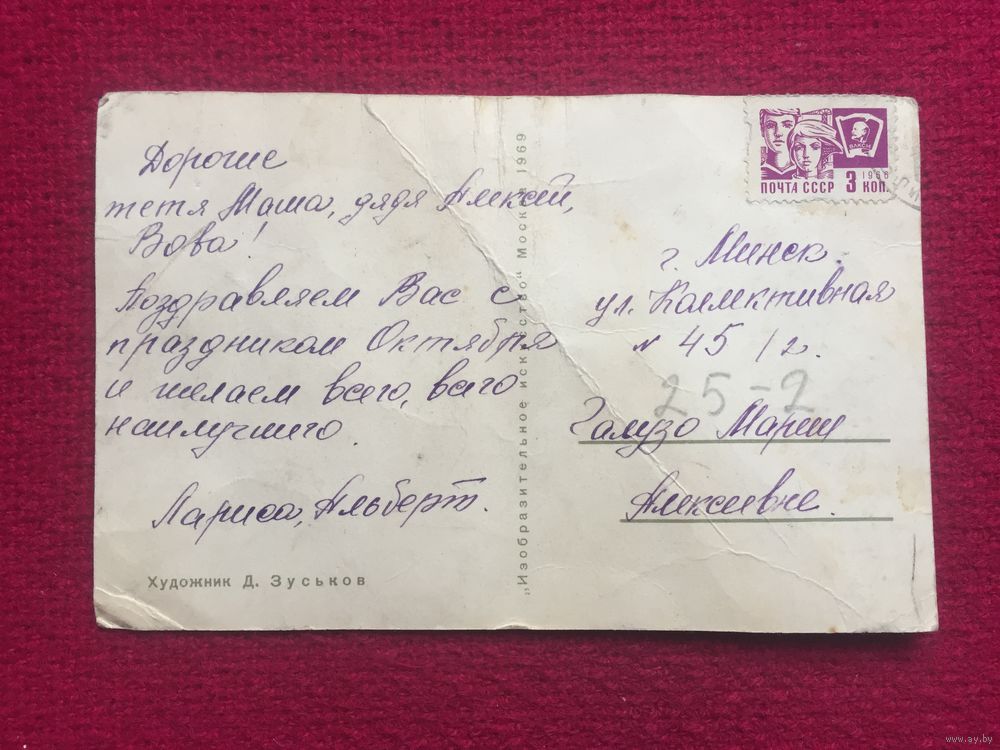 Дорогие
тетя Маша, дядя Алексей,
Вова!
Поздравляем Вас с
праздником Октября
и желаем всего, всего
наилучшего.
Лариса, Альберт.
Художник Д. Зуськов
„Изобразительное искусство“ Москва 1969
1966
ПОЧТА СССР 3 КОП.
ВЛКСМ
г. Минск.
ул. Коллективная
N 45 / 2.
25-2
Галузо Марии
Алексеевне.
www.ay.by